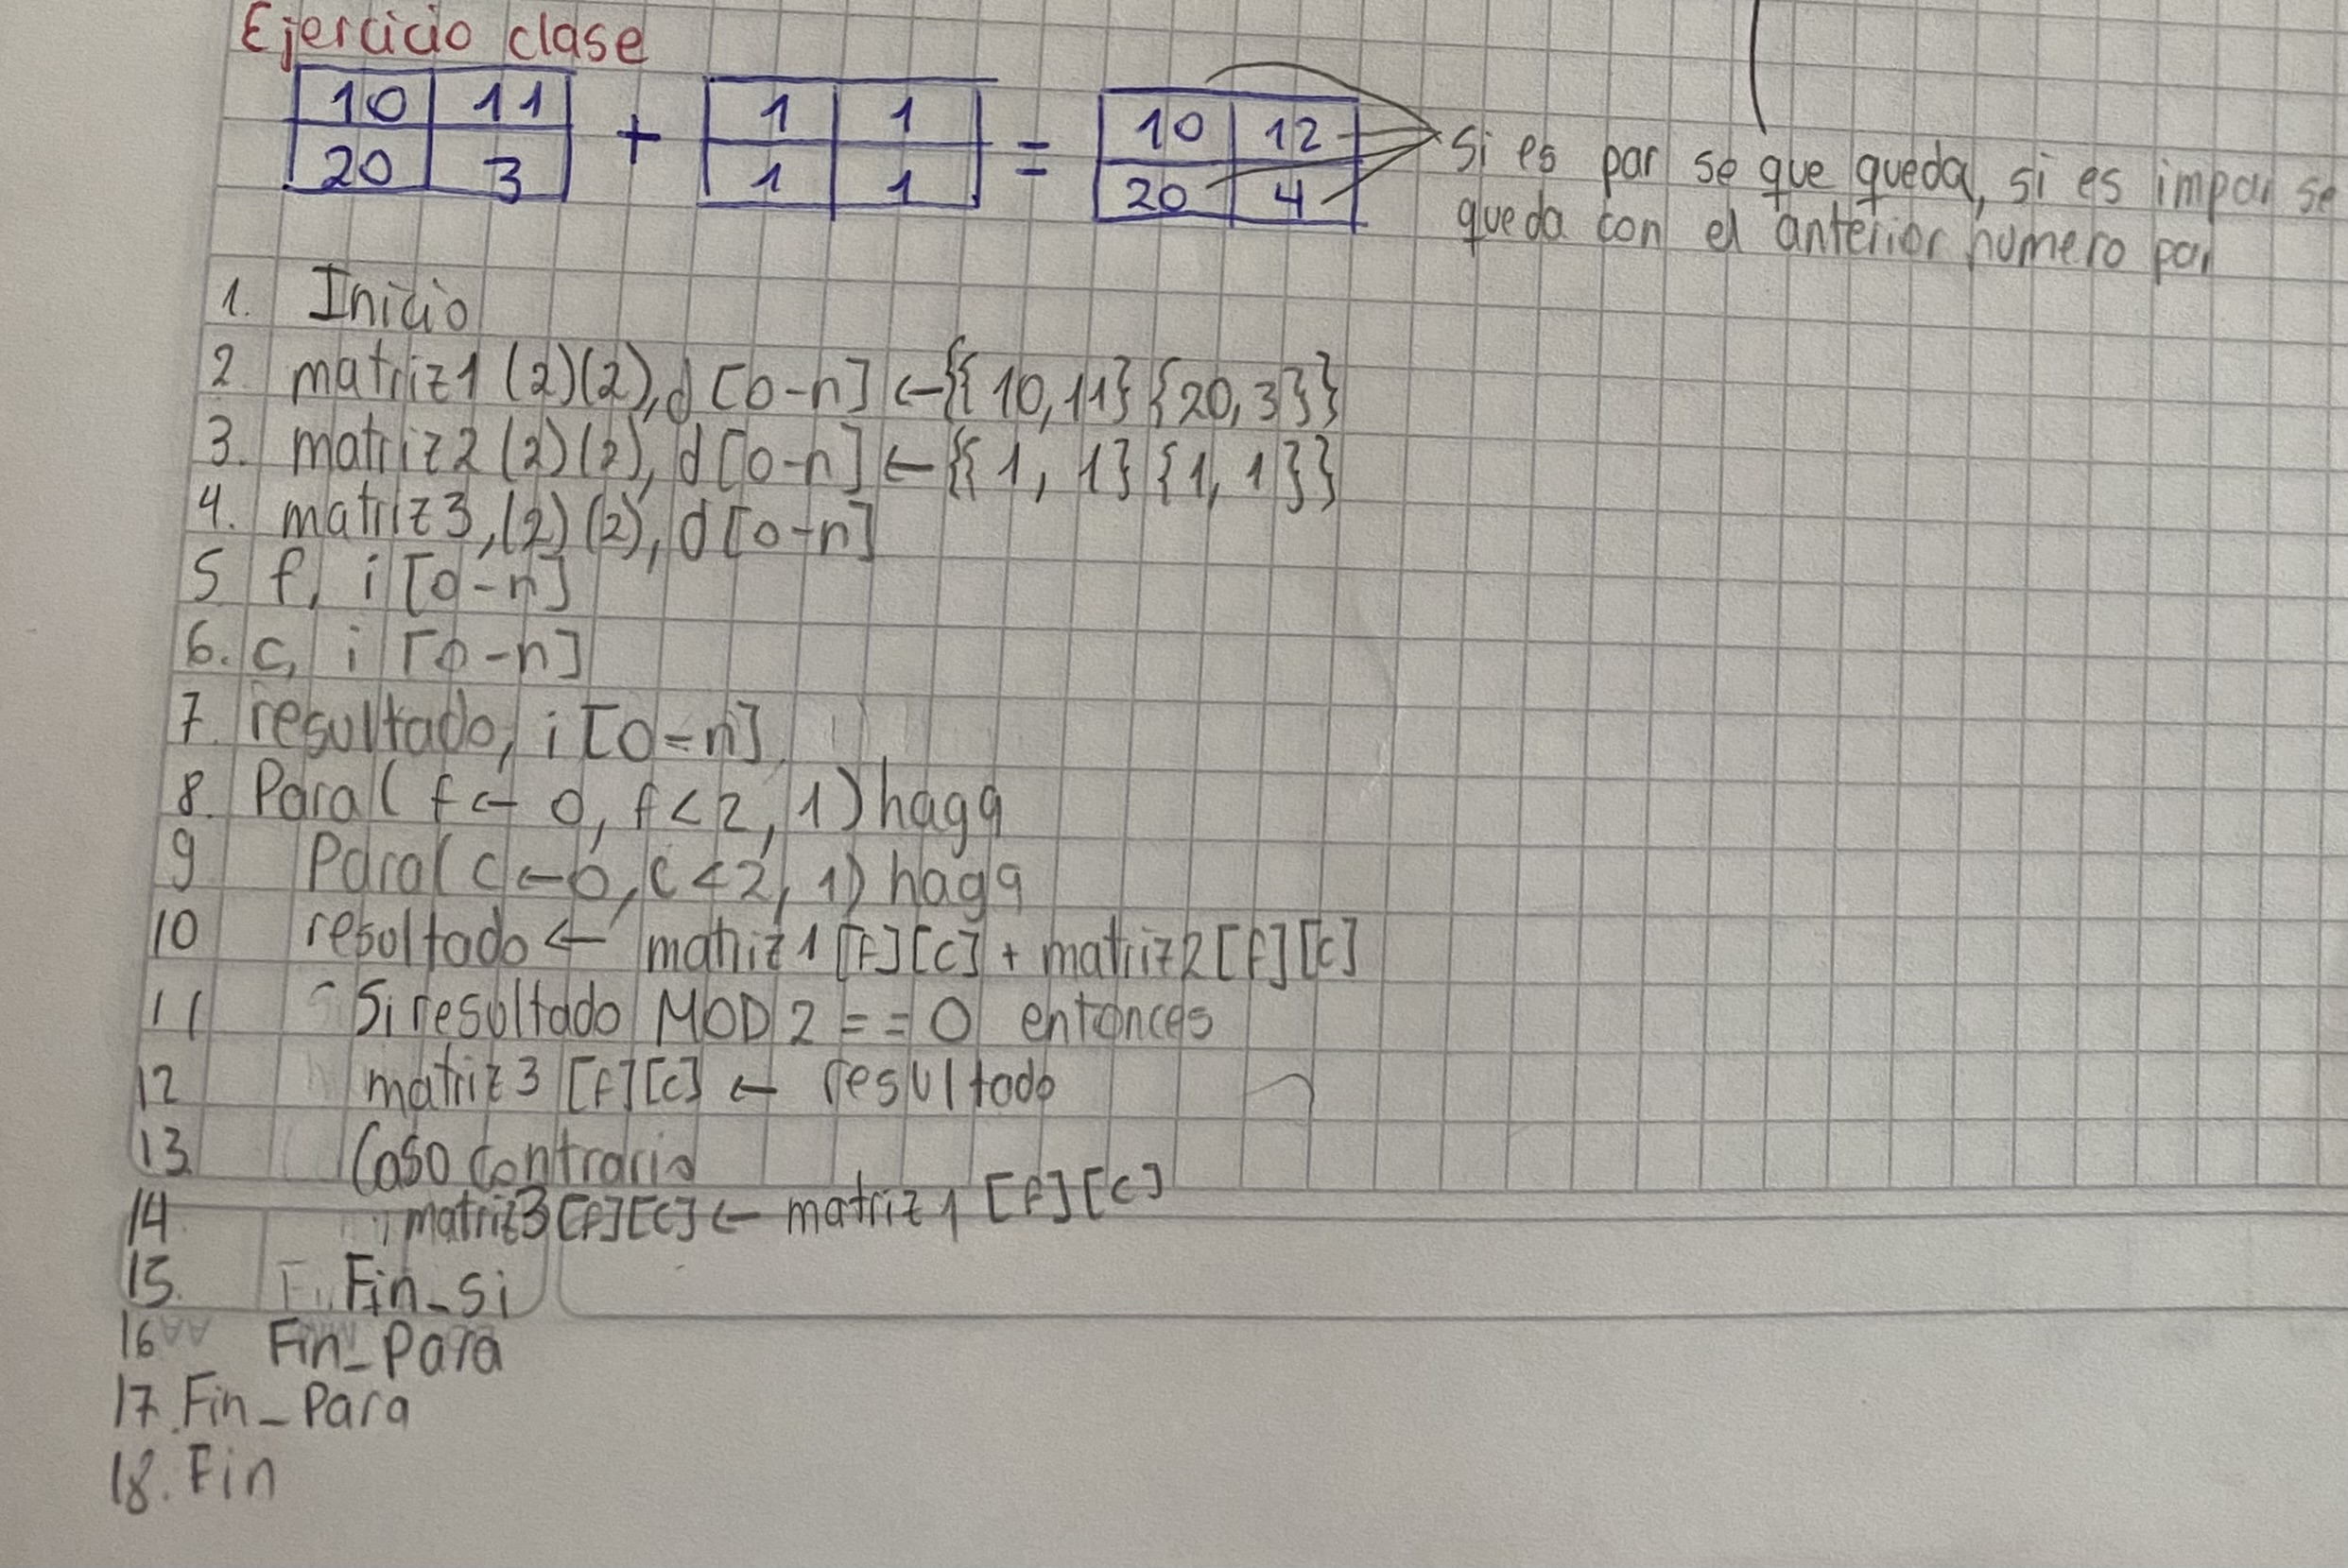 Ejercicio clase
10 11 + 1 1 = 10 12
20 3 1 1 20 4
Si es par se que queda, si es impar se
queda con el anterior numero par
1. Inicio
2 matriz1 (2)(2), d [0-n] ←{{10,11}{20,3}}
3. matriz2 (2)(2), d [0-n] ←{{1, 1}{1, 1}}
4. matriz3, (2)(2), d [0-n]
5 f, i [0-n]
6. c, i [0-n]
7. resultado, i [0-n]
8. Para ( f ← 0, f < 2, 1) haga
9 Para ( c ← 0, c < 2, 1) haga
10 resultado ← matriz1 [f][c] + matriz2 [f][c]
11 Si resultado MOD 2 == 0 entonces
12 matriz3 [f][c] ← resultado
13. Caso contrario
14 matriz3 [f][c] ← matriz1 [f][c]
15. Fin_si
16 Fin_Para
17. Fin_Para
18. Fin